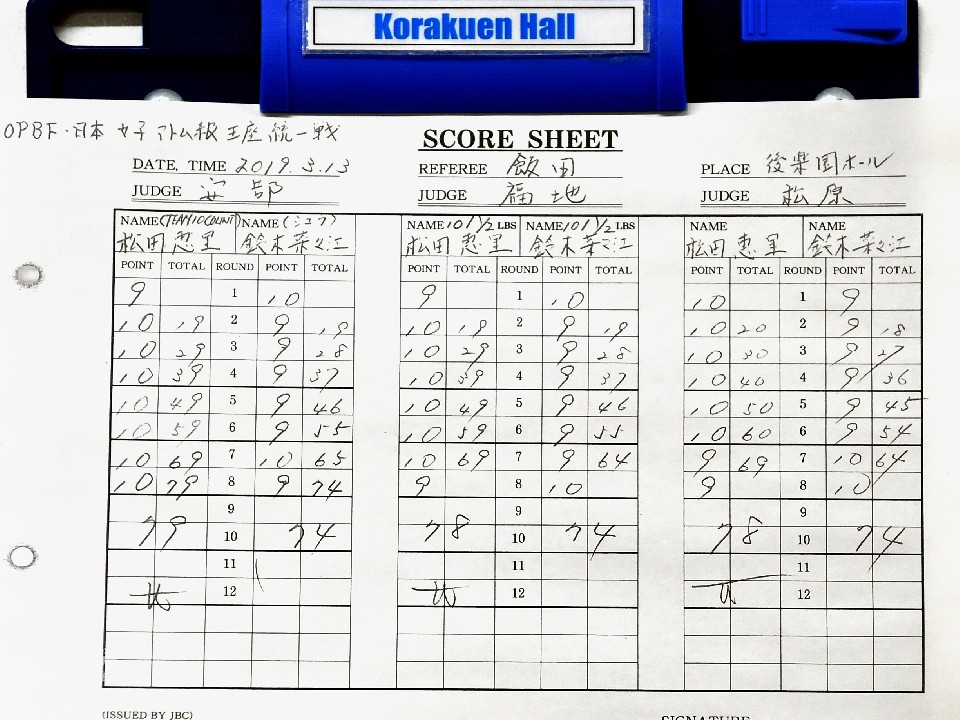 Korakuen Hall
OPBF・日本 女子 アトム級 王座 統一戦
SCORE SHEET
DATE, TIME 2019.3.13 REFEREE 飯田 PLACE 後楽園ホール
JUDGE 安部 JUDGE 福地 JUDGE 松原
NAME (TEAM 10COUNT) NAME (シュウ) NAME 101 1/2 LBS NAME 101 1/2 LBS NAME NAME
松田 恵里 鈴木 菜々江 松田 恵里 鈴木 菜々江 松田 恵里 鈴木 菜々江
POINT TOTAL ROUND POINT TOTAL POINT TOTAL ROUND POINT TOTAL POINT TOTAL ROUND POINT TOTAL
9 1 10 9 1 10 10 1 9
10 19 2 9 19 10 19 2 9 19 10 20 2 9 18
10 29 3 9 28 10 29 3 9 28 10 30 3 9 27
10 39 4 9 37 10 39 4 9 37 10 40 4 9 36
10 49 5 9 46 10 49 5 9 46 10 50 5 9 45
10 59 6 9 55 10 59 6 9 55 10 60 6 9 54
10 69 7 10 65 10 69 7 9 64 9 69 7 10 64
10 79 8 9 74 9 8 10 9 8 10
9 9 9
79 10 74 78 10 74 78 10 74
11 11 11
12 12 12
(ISSUED BY JBC) SIGNATURE